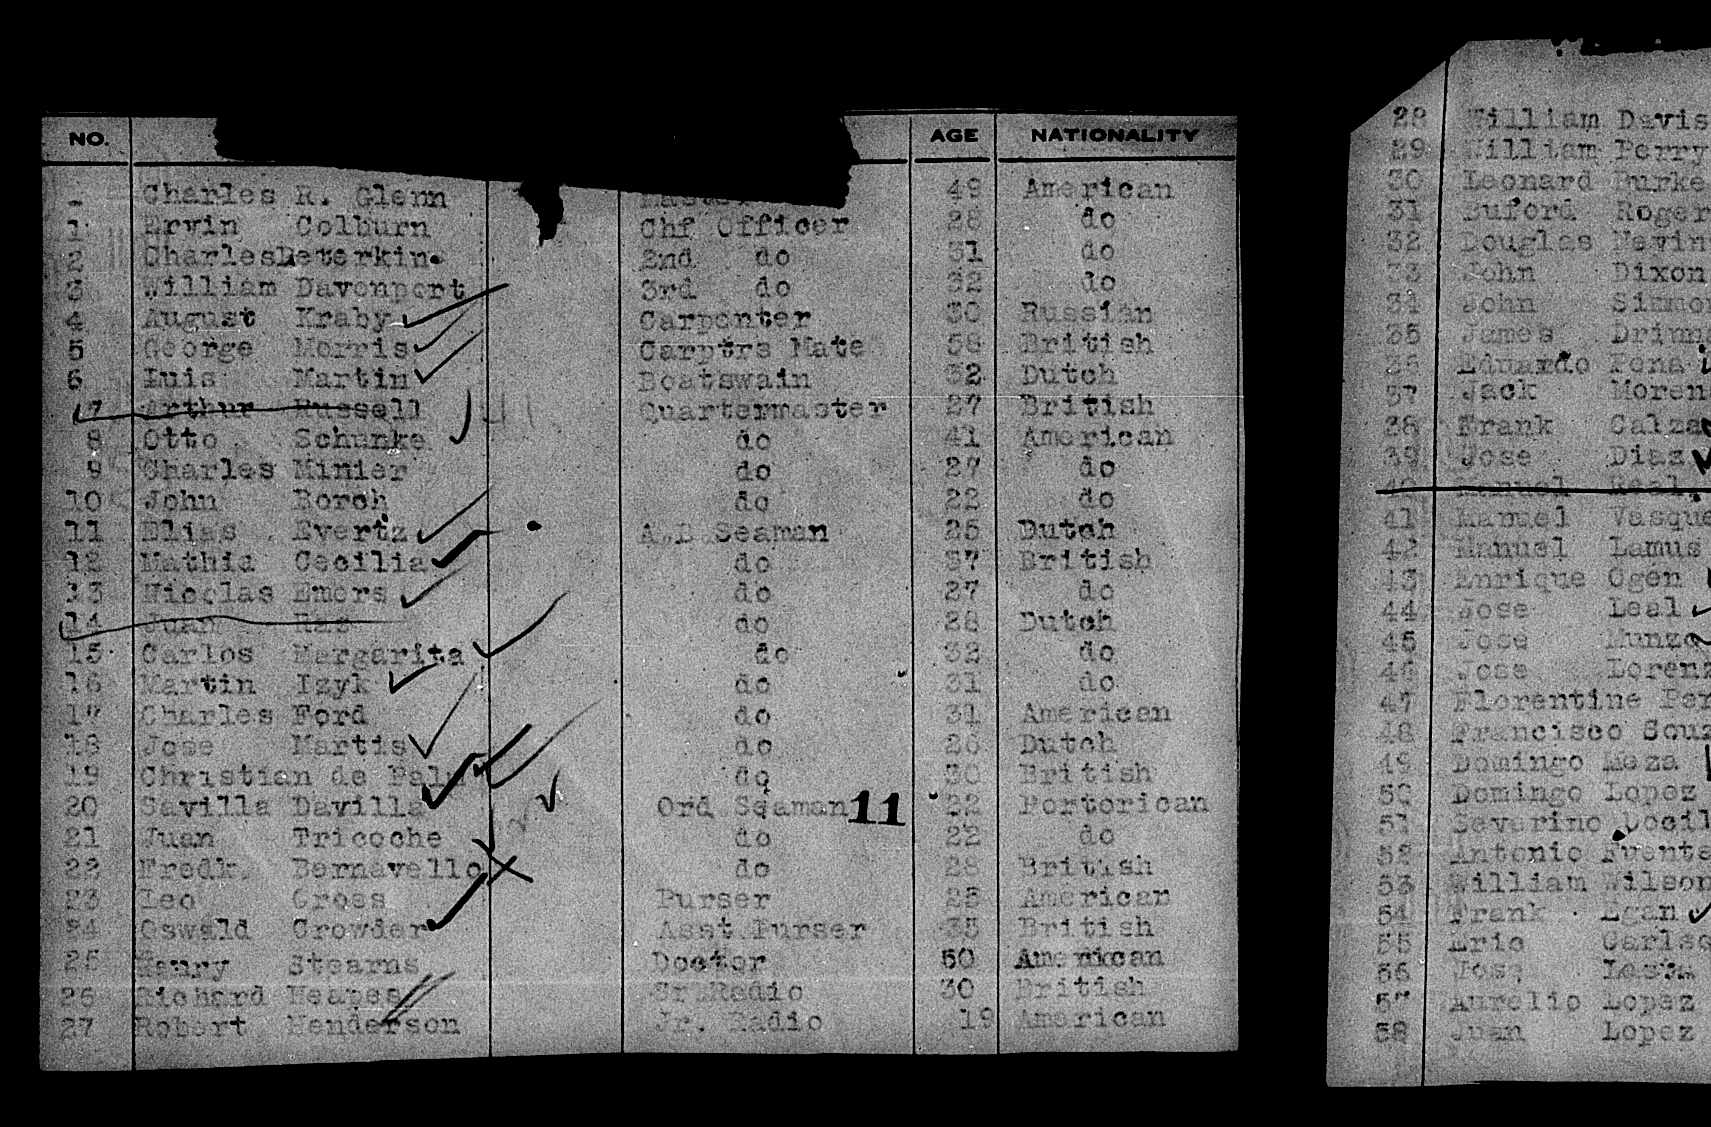 NO. AGE NATIONALITY
- Charles R. Glenn 49 American
1 Ervin Colburn Chf Officer 28 do
2 Charles Peterkin. 2nd do 31 do
3 William Davenport 3rd do 32 do
4 August Kraby Carpenter 30 Russian
5 George Morris Carptrs Mate 58 British
6 Luis Martin Boatswain 32 Dutch
7 Arthur Russell Quartermaster 27 British
8 Otto Schunke do 41 American
9 Charles Minier do 27 do
10 John Borch do 22 do
11 Elias Evertz A.B Seaman 25 Dutch
12 Mathid Cecilia do 37 British
13 Nicolas Emers do 27 do
14 Juan Ras do 28 Dutch
15 Carlos Margarita do 32 do
16 Martin Izyk do 31 do
17 Charles Ford do 31 American
18 Jose Martis do 26 Dutch
19 Christian de Palm do 30 British
20 Savilla Davilla Ord Seaman 11 22 Portorican
21 Juan Tricoche do 22 do
22 Fredk. Bernavello do 28 British
23 Leo Gross Purser 25 American
24 Oswald Crowder Asst Purser 35 British
25 Henry Stearns Doctor 50 American
26 Richard Heapes Sr Radio 30 British
27 Robert Henderson Jr. Radio 19 American
28 William Davis
29 William Perry
30 Leonard Burke
31 Buford Roger
32 Douglas Nevin
33 John Dixon
34 John Simmo
35 James Drinn
36 Eduardo Pena
37 Jack Moren
38 Frank Calza
39 Jose Diaz
40 Manuel Real
41 Manuel Vasque
42 Manuel Lamus
43 Enrique Ogen
44 Jose Leal
45 Jose Munzo
46 Jose Lorenz
47 Florentine Per
48 Francisco Souz
49 Domingo Meza
50 Domingo Lopez
51 Severino Docil
52 Antonio Fuente
53 William Wilson
54 Frank Egan
55 Eric Carlso
56 Jose
57 Aurelio Lopez
58 Juan Lopez